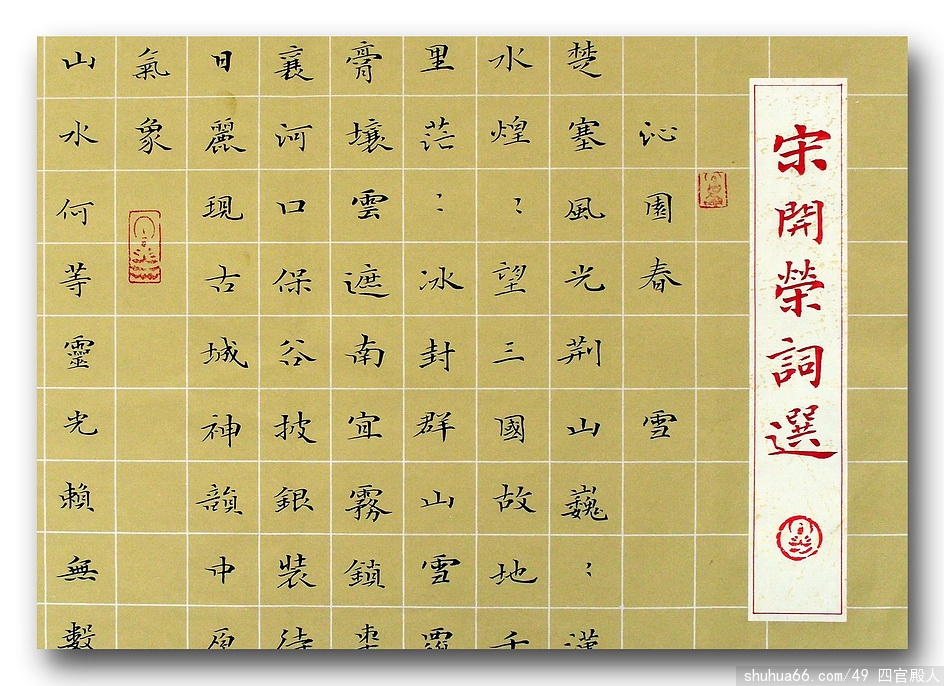 宋開榮詞選
沁園春 雪
楚塞風光荆山巍：漢
水煌：望三國故地千
里茫：冰封群山雪
膏壤雲遮南宜霧鎖棗
襄河口保谷披銀裝待
日麗現古城神韻中原
氣象
山水何等靈光賴無數
shuhua66.com/49 四官殿人